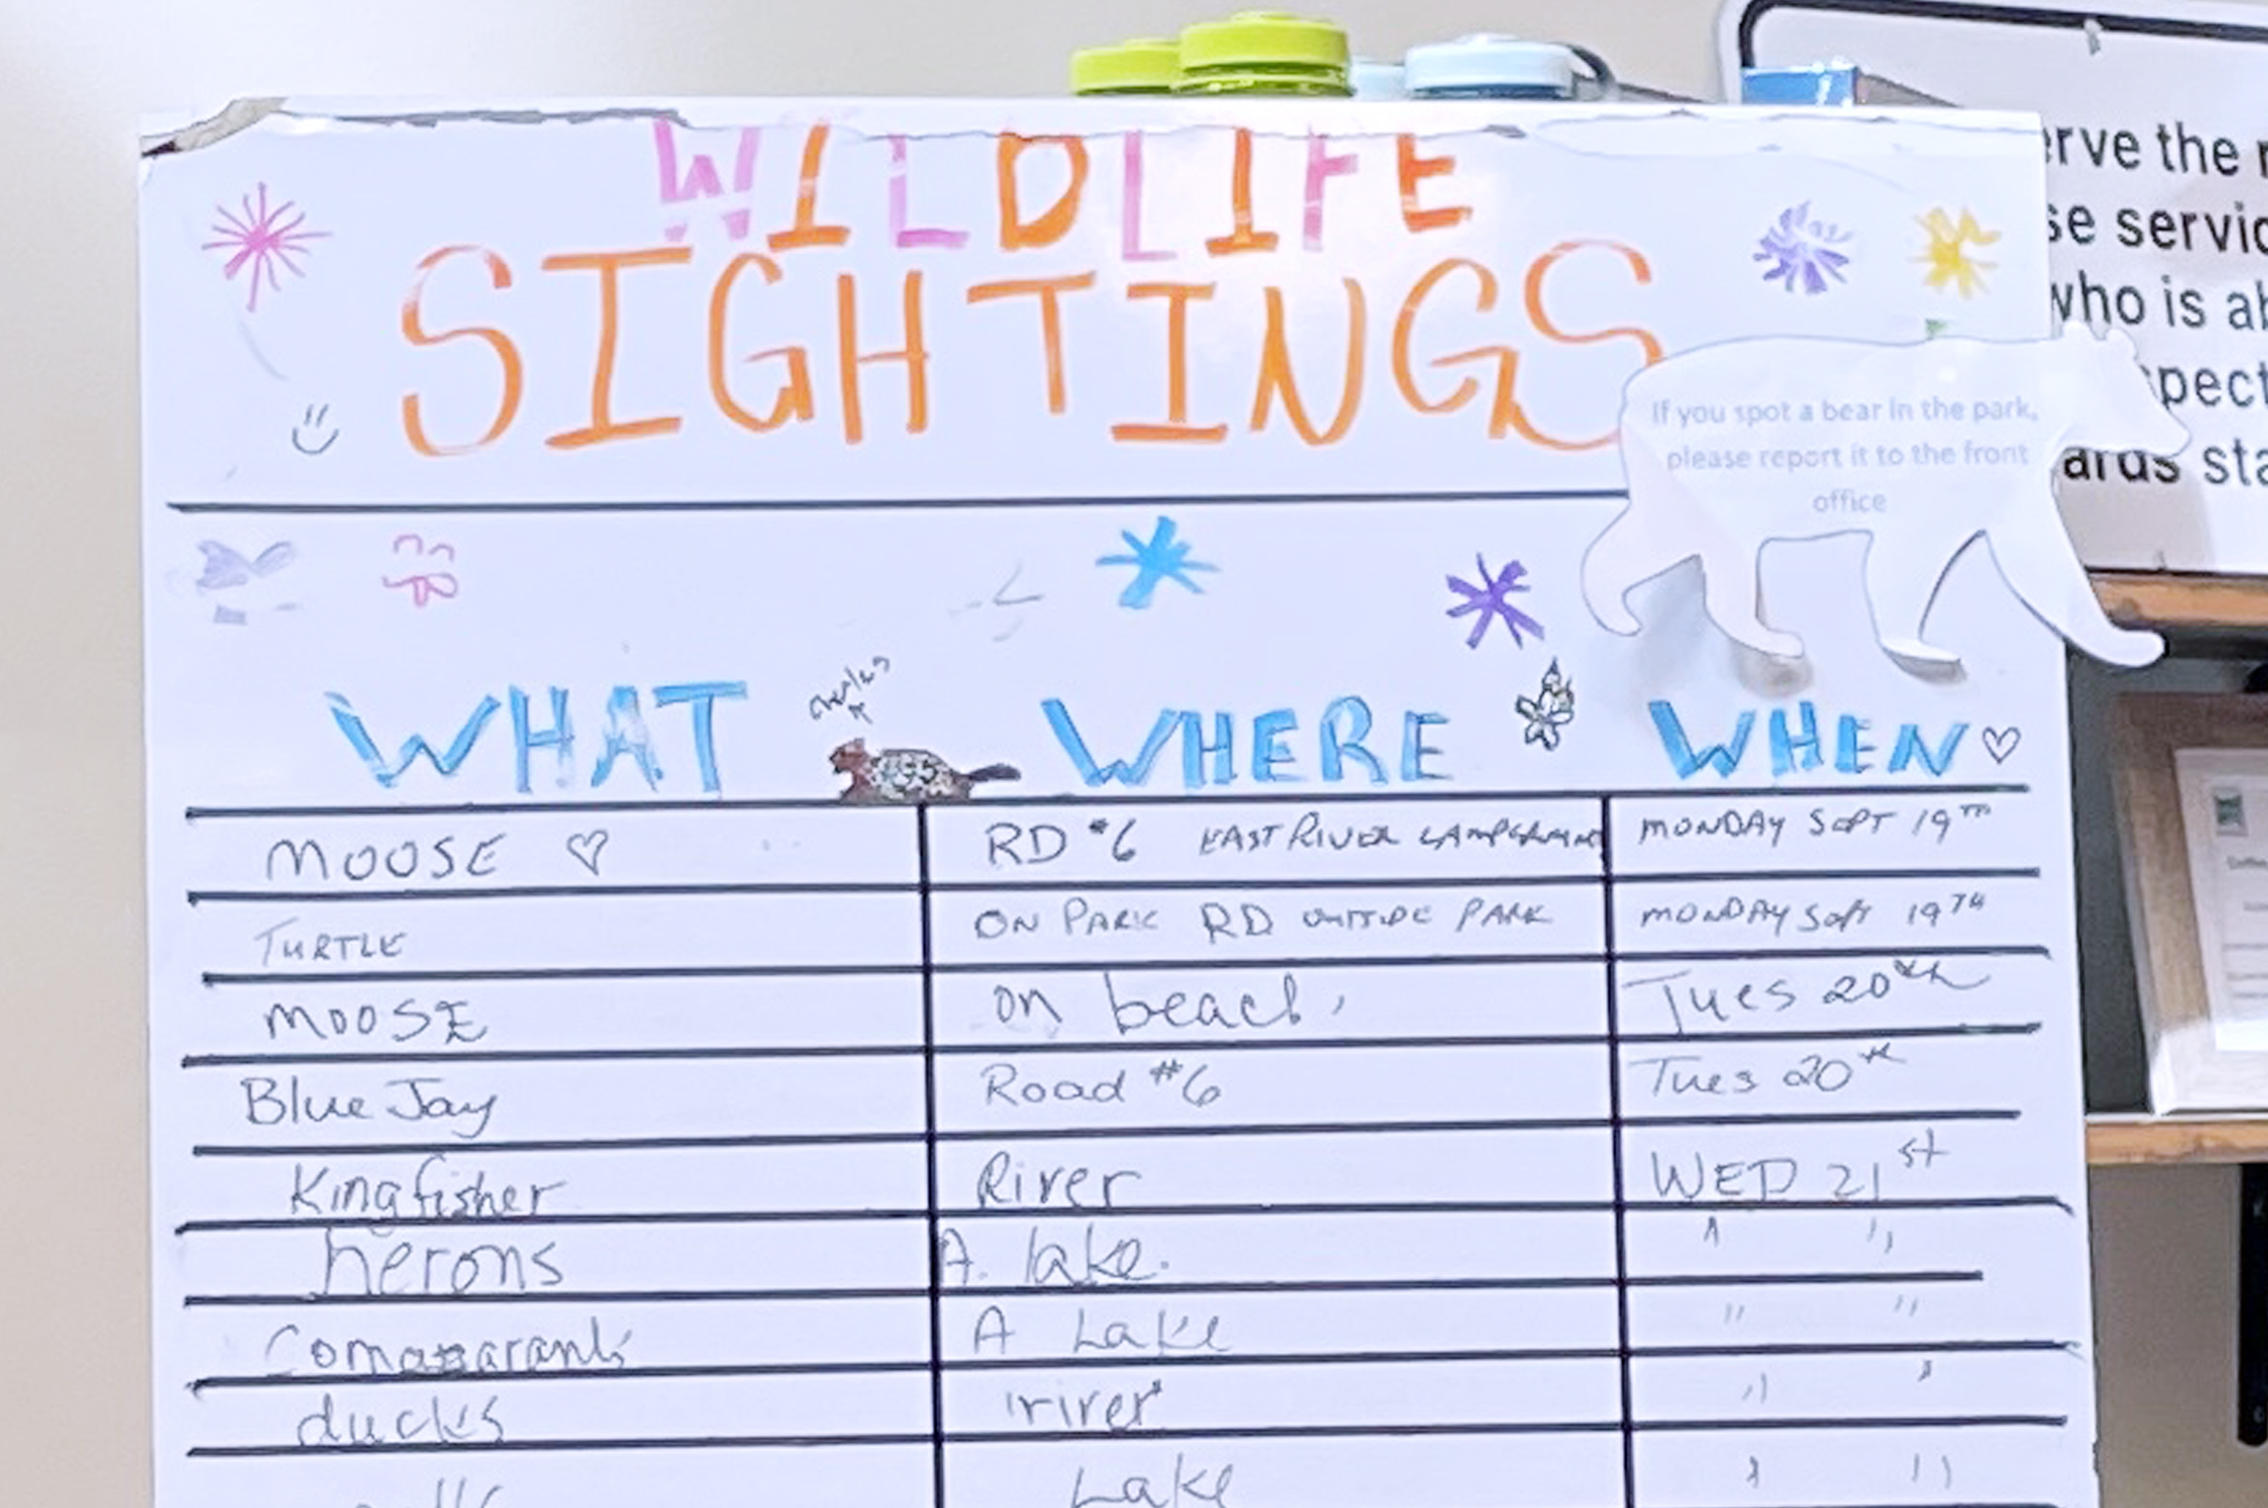 WILDLIFE
SIGHTINGS
If you spot a bear in the park,
please report it to the front
office
erve the
se servic
who is ab
spect
ards sta
WHAT WHERE WHEN
MOOSE RD #6 EAST RIVER CAMPGROUND MONDAY SEPT 19TH
TURTLE ON PARK RD OUTSIDE PARK MONDAY SEPT 19TH
MOOSE on beach Tues 20th
Blue Jay Road #6 Tues 20th
Kingfisher River WED 21st
herons A. lake. " "
A Lake " "
ducks river " "
Lake " "